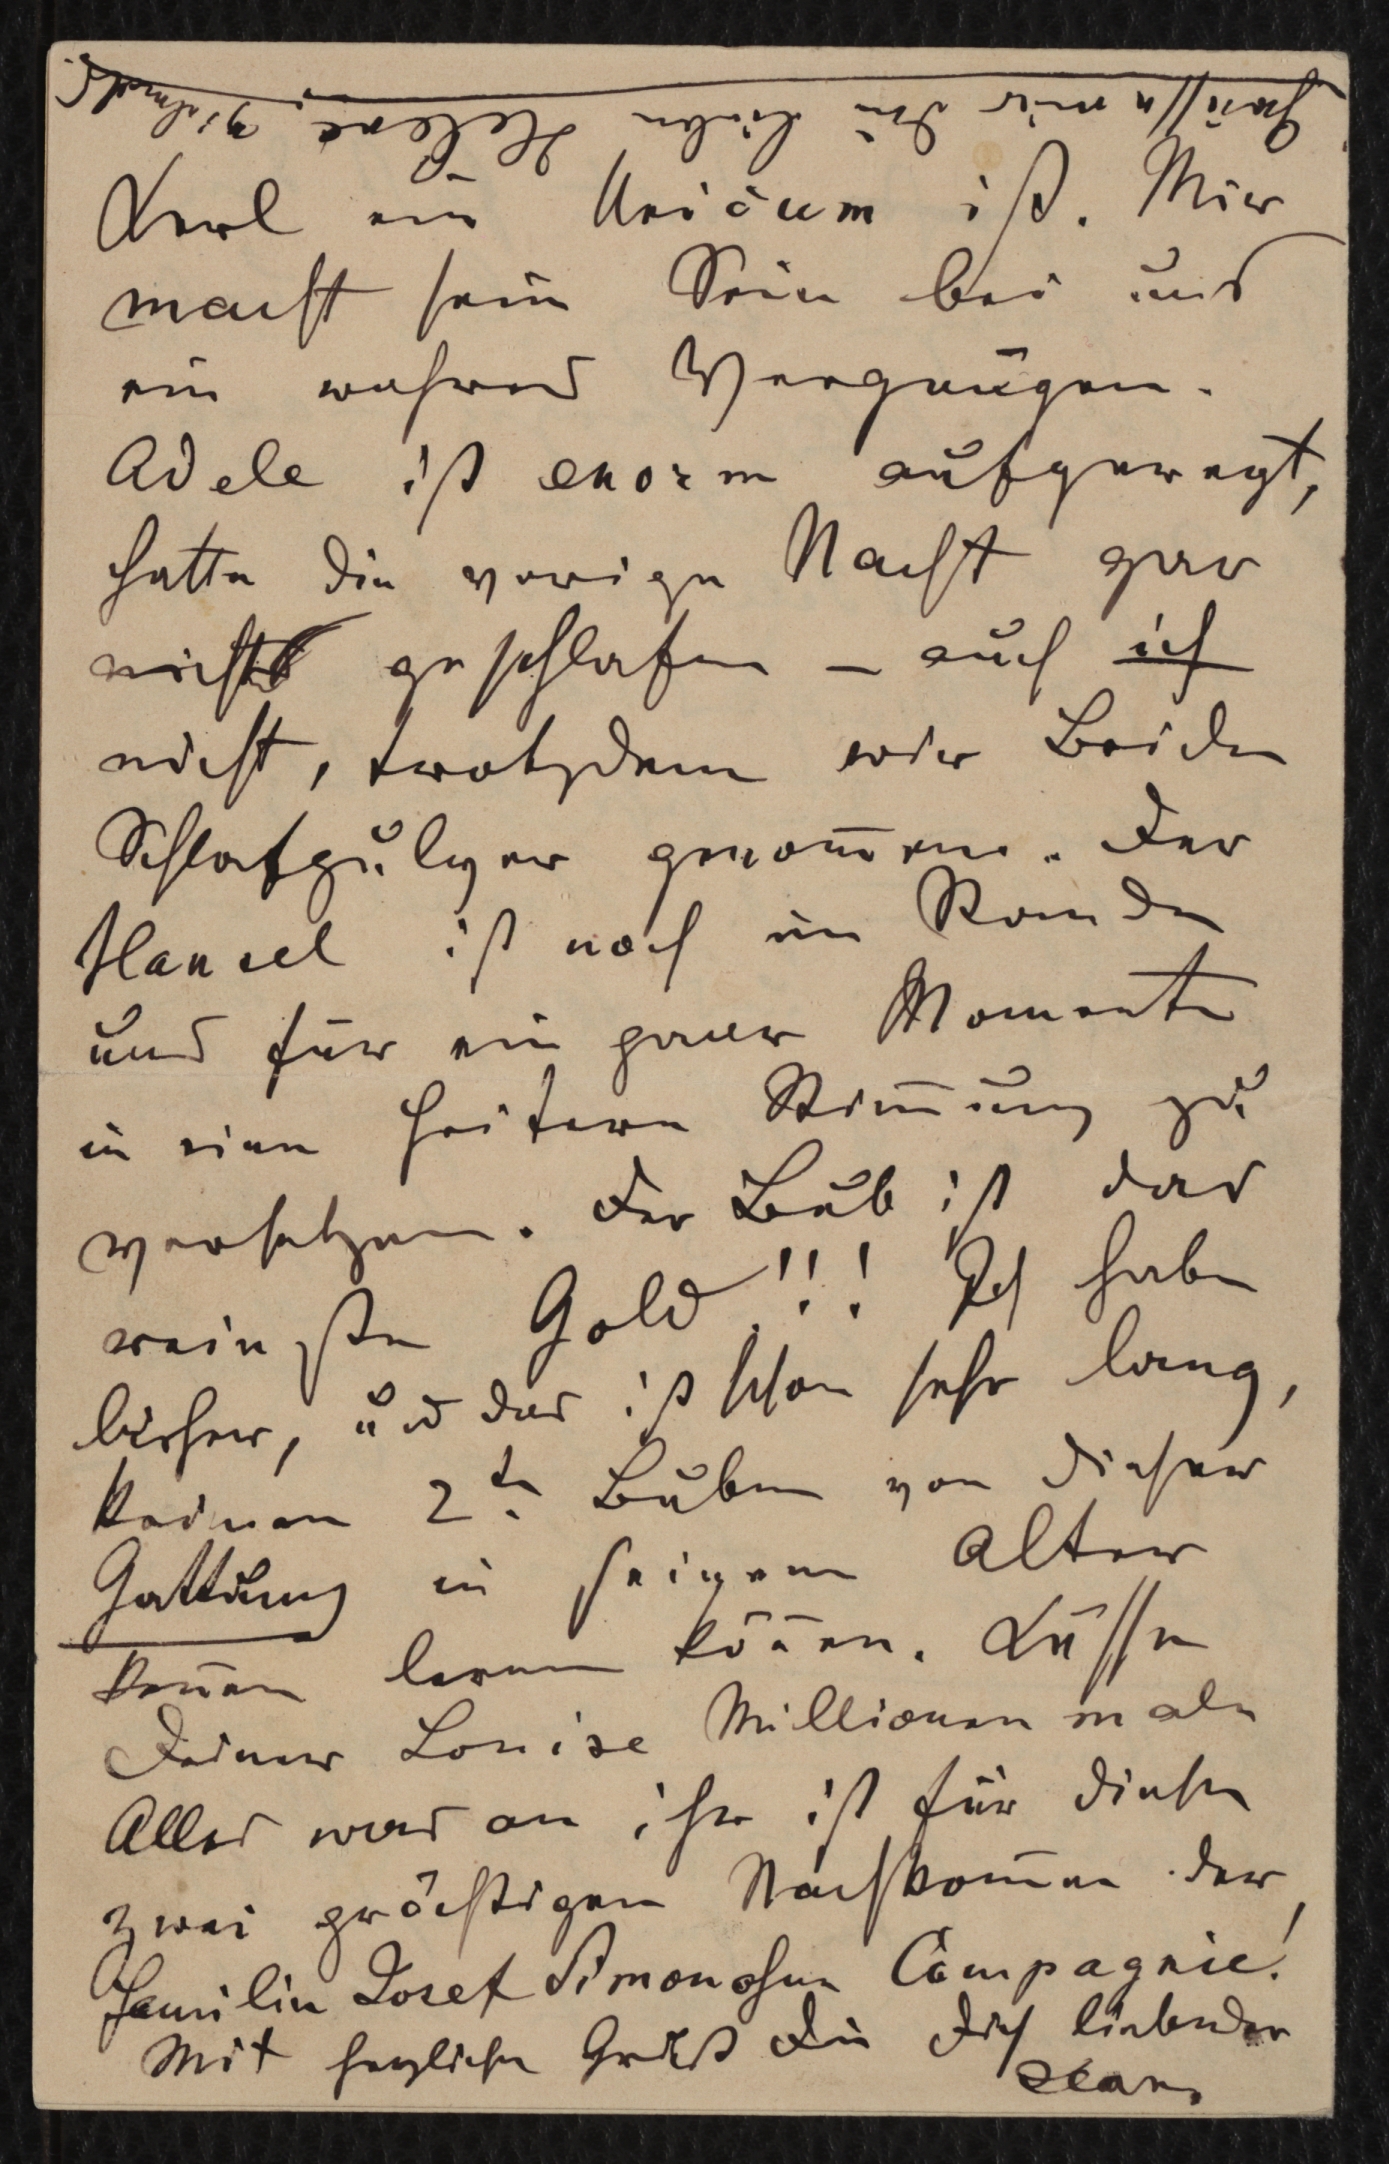 Grüsse mir die lieben Helene, vielmals.
Kerl ein Unicum ist. Mir
macht sein Sein bei uns
ein wahres Vergnügen.
Adele ist enorm aufgeregt,
hatte die vorige Nacht gar
nicht geschlafen – auch ich
nicht, trotzdem wir Beide
Schlafpulver genom̄en. Der
Hansel ist noch im Stande
uns für ein paar Momente
in eine heitere Stim̄ung zu
versetzen. Der Bub ist das
reinste Gold!!! Ich habe
bisher, und das ist schon sehr lang,
keinen 2ten Buben von dieser
Gattung in seinem Alter
ken̄en lernen kön̄en. Küsse
Deiner Louise Millionen male
Alles was an ihr ist für diese
zwei prächtigen Nachkom̄en der
Familie Josef Simon &
Compagnie!
Mit herzlichen Gruß Dein Dich liebender
Jean.